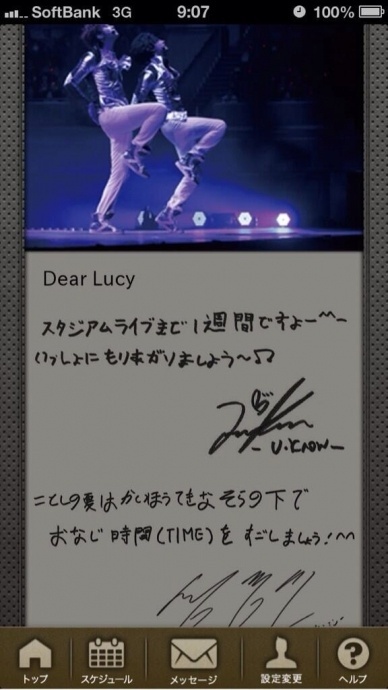 SoftBank 3G 9:07 100%
Dear Lucy
スタジアムライブまで1週間ですよー^^ー
いっしょにもりあがりましょう〜♫
- U-KNOW -
ことしの夏はかいほうてきなそらの下で
おなじ時間(TIME)をすごしましょう!^^
トップ スケジュール メッセージ 設定変更 ヘルプ